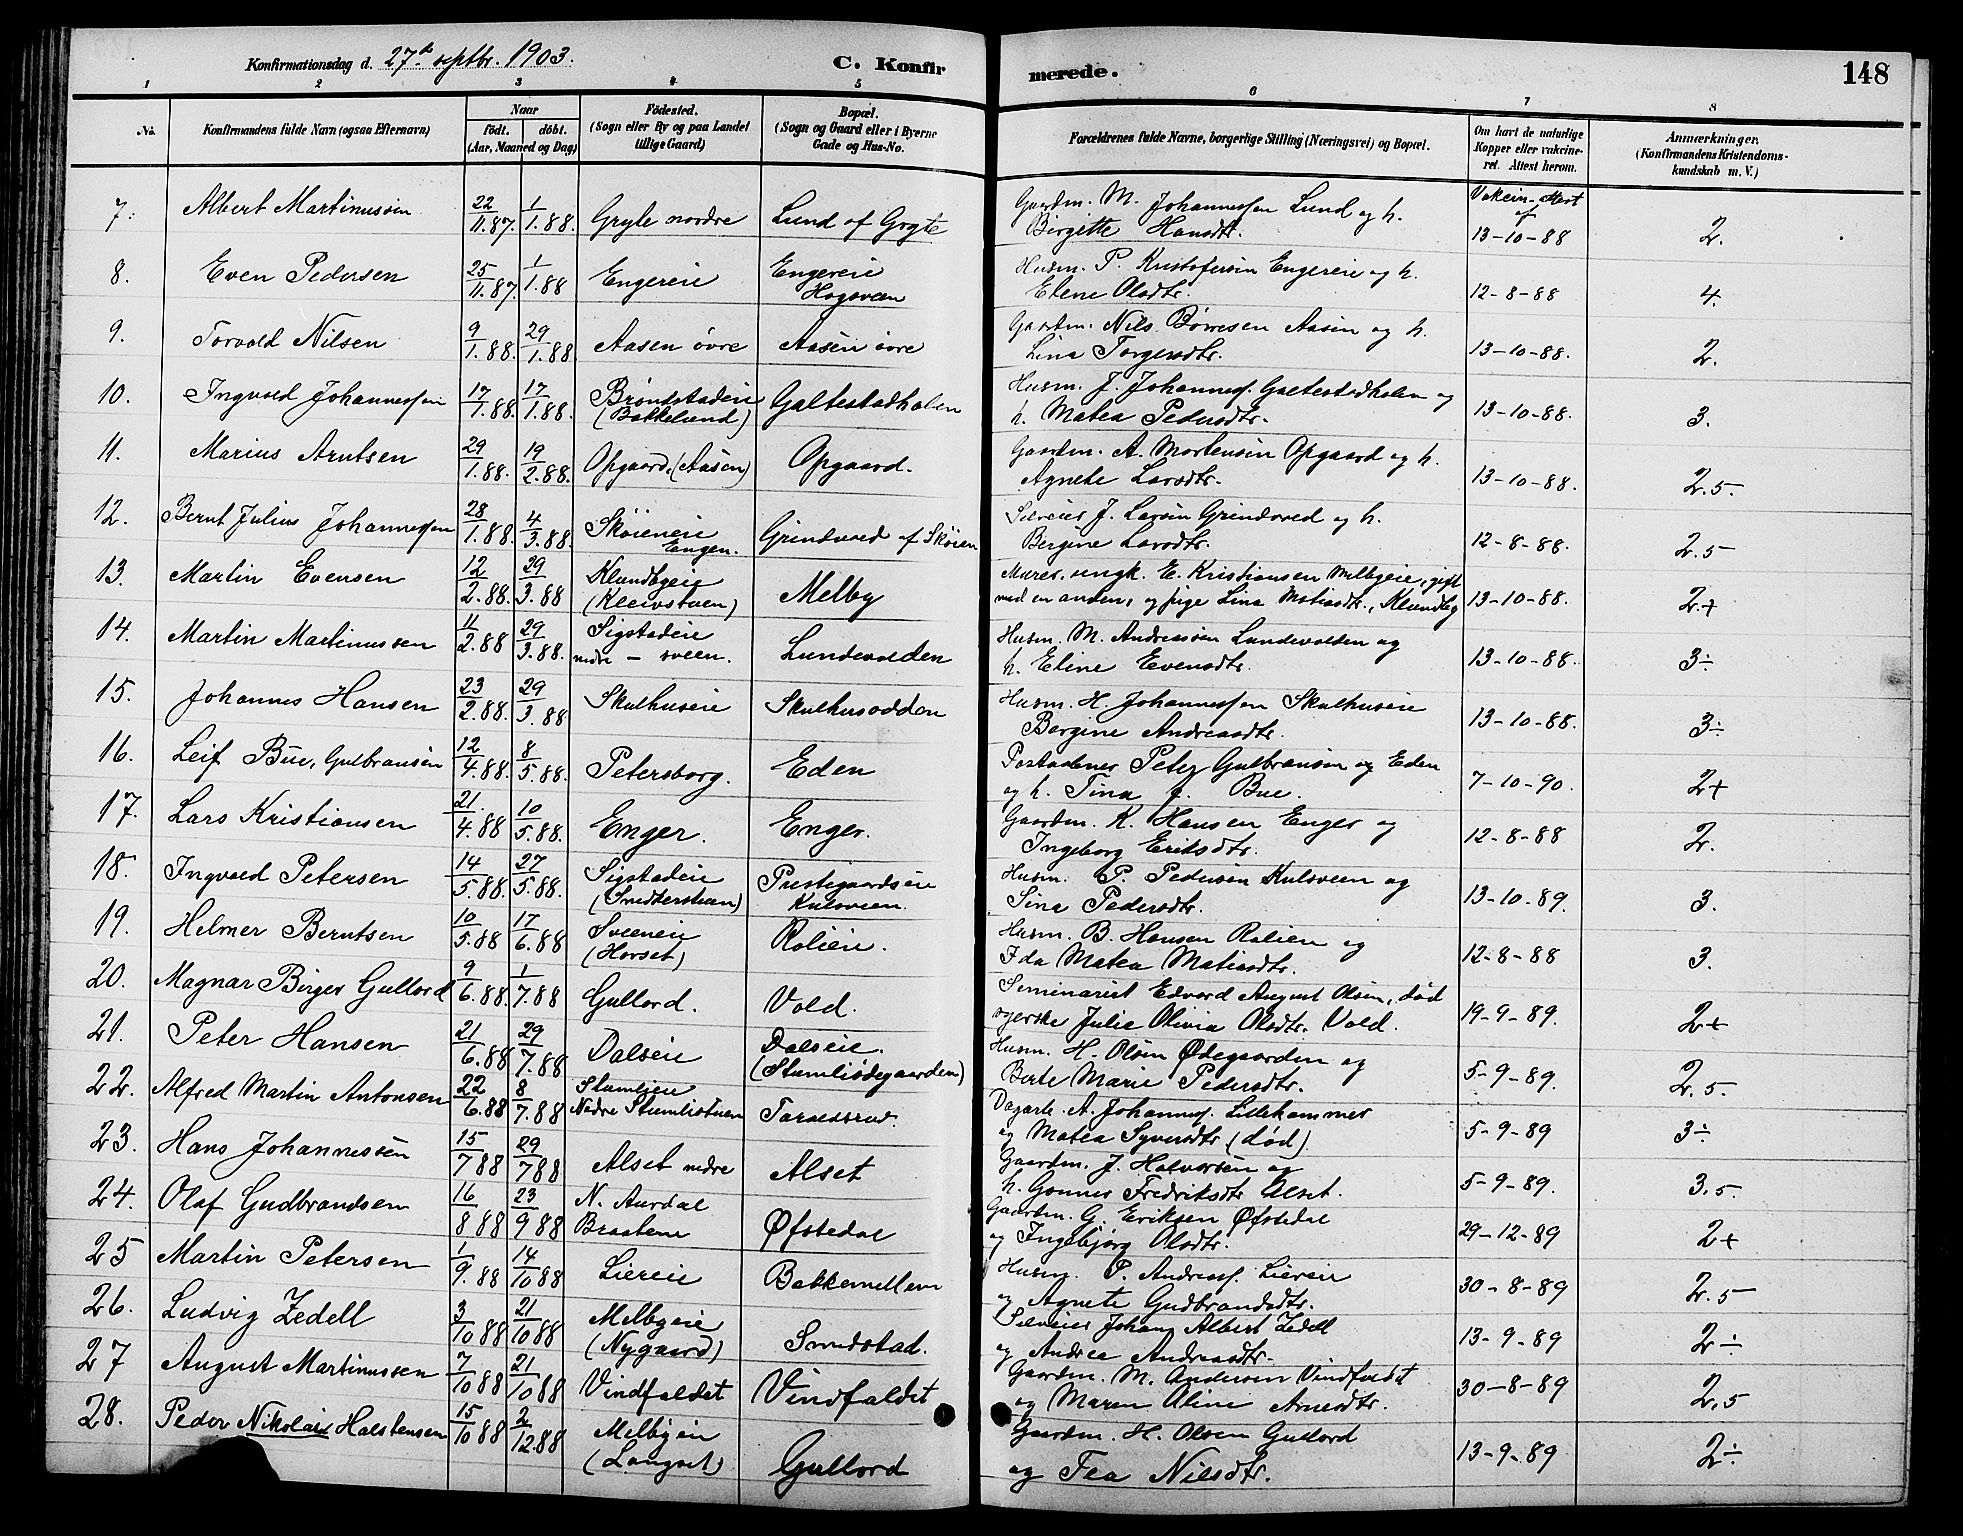 Konfirmationsdag d. 27de septbr. 1903. C. Konfirmerede. 148
1 2 3 4 5 6 7 8
No. Konfirmandens fulde Navn (ogsaa Efternavn) Naar födt. döbt. (Aar, Maaned og Dag) Födested. (Sogn eller By og paa Landet tillige Gaard) Bopæl. (Sogn og Gaard eller i Byerne Gade og Hus-No. Forældrenes fulde Navne, borgerlige Stilling (Næringsvei) og Bopæl. Om havt de naturlige Kopper eller vakcineret. Attest herom. Anmærkninger. (Konfirmandens Kristendomskundskab m. V.)
7. Albert Martinussen 22/11.87. 1/1.88. Gryte nordre Lund af Gryte Gaardm. M. Johannessen Lund og h. Birgitte Hansdtr. Vakcin. Attest af 13-10-88 2.
8. Even Pedersen 25/11.87. 1/1.88 Engereie Engereie Hagsveen Husm. P. Kristofersen Engereie og h. Eline Olsdtr. 12-8-88 4.
9. Torvald Nilsen 9/1.88. 29/1.88 Aasen øvre Aasen øvre Gaardm. Nils Børresen Aasen og h. Lina Torgersdtr. 13-10-88. 2.
10. Ingvald Johannessen 17/1.88. 17/1.88. Brøndstadeie (Bakkelund) Galtestadholen Husm. J. Johanness. Galtestadholen og h. Matea Pedersdtr. 13-10-88. 3.
11. Marius Arntsen 29/1.88. 19/2.88. Opgaard. (Aasen) Opgaard. Gaardm. A. Mortensen Opgaard og h. Agnete Larsdtr. 13-10-88. 2.5.
12. Bernt Julius Johannessen 28/1.88. 4/3.88. Skøieneie Engen. Grindvold af Skøien Selveier J. Larsen Grindvold og h. Bergine Larsdtr. 12-8-88. 2.5
13. Martin Evensen 12/2.88. 29/3.88 Klundbyeie (Kleivstuen) Melby Murer, ungk. E. Kristiansen Melbyeie, gift med en anden, og pige Lina Matiasdtr., Klundby 13-10-88. 2+
14. Martin Martinussen 11/2.88 29/3.88. Sigstadeie nedre - sveen. Lundevolden Husm. M. Andreassen Lundevolden og h. Eline Evensdtr. 13-10-88. 3÷
15. Johannes Hansen 23/2.88. 29/3.88 Skulhuseie Skulhusodden Husm. H. Johannessen Skulhuseie Bergine Andreasdtr. 13-10-88. 3÷
16. Leif Bue, Gulbransen 12/4.88. 8/5.88. Petersborg. Eden Postaabner Peter Gulbransen og Eden og h. Tina f. Bue. 7-10-90. 2+
17. Lars Kristiansen 21./4.88 10/5.88. Enger. Enger. Gaardm. K. Hansen Enger og Ingeborg Eriksdtr. 12-8-88 2.
18. Ingvald Petersen 14/5.88. 27/5.88. Sigstadeie (Smedterstuen) Prestegaardseie Kulsveen. Husm. P. Pedersen Kulsveen og Sina Pedersdtr. 13-10-89. 3.
19. Helmer Berntsen 10/5.88 17/6.88 Sveeneie (Horset) Rolien. Husm. B. Hansen Rolien og Ida Matea Matiasdtr. 12-8-88 3.
20. Magnar Birger Gullord 9/6.88. 1/7.88 Gullord. Vold. Seminarist Edvard August Olsen, død syerske Julie Olivia Olsdtr. Vold. 19-9-89. 2+
21. Peter Hansen 21/6.88 29/7.88 Dalseie Dalseie. (Stumliødegaarden) Husm. H. Olsen Ødegaarden og Berte Marie Pedersdtr. 5-9-89. 2.5.
22. Alfred Martin Antonsen 22/6.88 8/7.88 Stumlien Nedre Stumlistuen Taraldsrud. Dagarb. A. Johanness. Lillehammer og Matea Syversdtr. (død). 5-9-89 3÷
23. Hans Johannessen 15/788 29/788 Alset nedre Alset Gaardm. J. Halvorsen og h. Gunner Fredriksdtr. Alset. 5-9-89. 3.5.
24. Olaf Gudbrandsen 16/888 23/988 N. Aurdal Braatene Øfstedal Gaardm. G. Eriksen Øfstedal og Ingebjørg Olsdtr. 29-12-89 2+
25 Martin Petersen 1/9.88 14/1088 Liereie Bakkemellem Husm. P. Andreass. Liereie og Agnete Gudbrandsdtr. 30-8-89 2.5
26. Ludvig Zedell 3/1088 21/1088 Melbyeie (Nygaard) Smedstad. Selveier Johan Albert Zedell og Andrea Andreasdtr. 13-9-89 2÷
27 August Martinussen 7/1088 21/1088 Vindfaldet Vindfaldet Gaardm. M. Andersen Vindfaldet og Maren Oline Arnesdtr. 30-8-89 2.5
28. Peder Nikolai Halstensen 15/1088 2/12.88 Melbyeie (Langset) Gullord Gaardm. H. Olsen Gullord og Fea Nilsdtr. 13-9-89 2÷